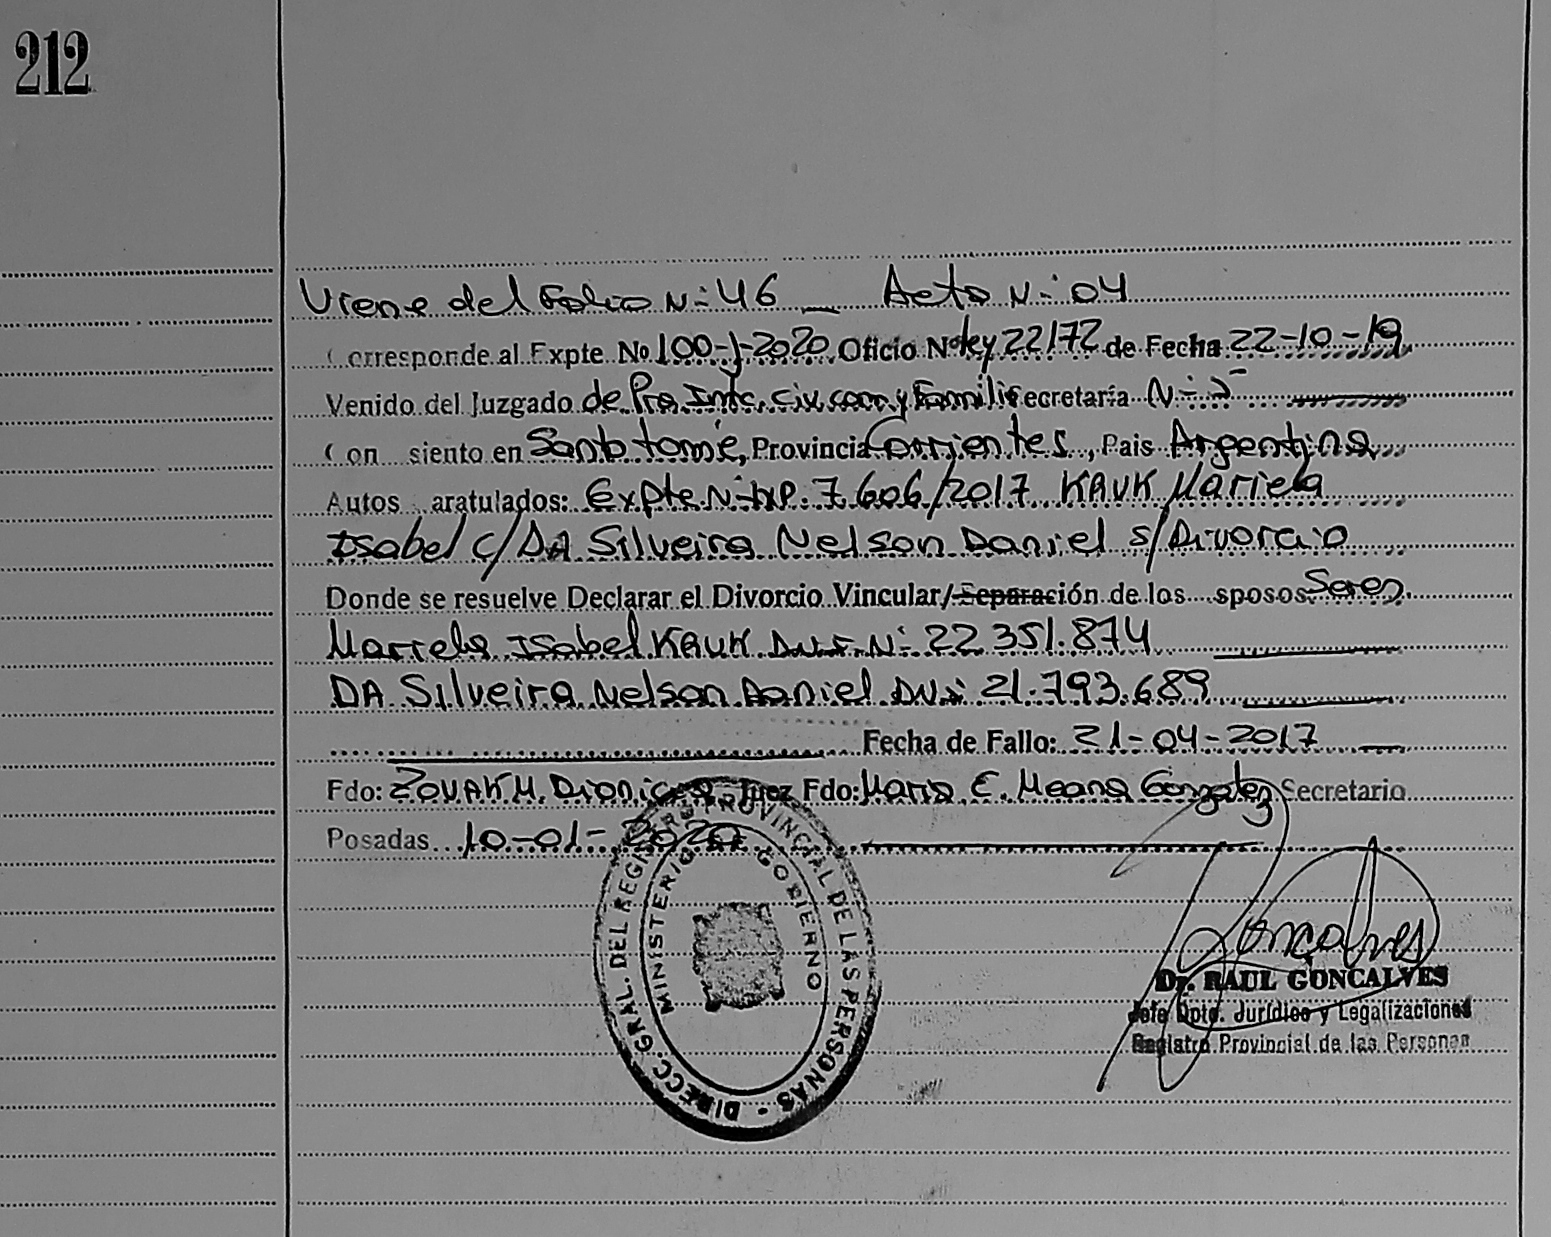 212
Viene del Folio N: 46 _ Acta N: 04
Corresponde al Expte No 100-J-2020 Oficio Nº ley 22172 de Fecha 22-10-19
Venido del Juzgado de Pra Inst. Civ. com y Famili Secretaría N: 2
Con siento en Santo tomé, Provincia Corrientes, Pais Argentina
Autos aratulados: Expte N: NXP. 7.606/2017 KAUK Mariela
Isabel c/ DA Silveira Nelson Daniel s/ Divorcio
Donde se resuelve Declarar el Divorcio Vincular/Separación de los sposos Seres
Mariela Isabel KAUK D.N.I. N: 22.351.874
DA Silveira Nelson Daniel DNI 21.793.689
Fecha de Fallo: 21-04-2017
Fdo: ZOVAK M. Dionicia Juez Fdo: Maria C. Meana Gonzalez Secretario
Posadas 10-01-2020
DIRECC. GRAL. DEL REGISTRO PROVINCIAL DE LAS PERSONAS -
MINISTERIO GOBIERNO
Goncalves
Dr. RAUL GONCALVES
Jefe Dpto. Jurídico y Legalizaciones
Registro Provincial de las Personas